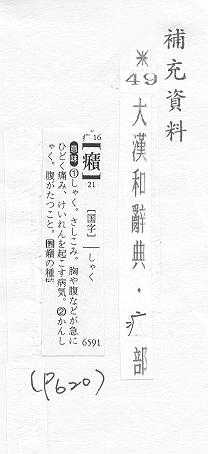 補充資料
※
49
大漢和辭典・疒部
疒16
【癪】
21
〔国字〕
しゃく
意味 ①しゃく。さしこみ。胸や腹などが急に
ひどく痛み、けいれんを起こす病気。②かんし
ゃく。腹がたつこと。
6591
(P620)